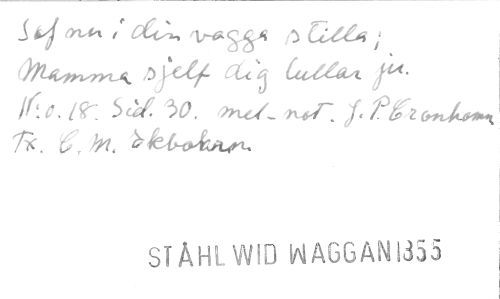 Sof nu i din vagga stilla;
Mamma sjelf dig lullar ju.
N:o. 18. Sid. 30. mel-not. J. P. Cronhamn
Tx. C. M. Ekbohrn.
STÅHL WID WAGGAN 1855